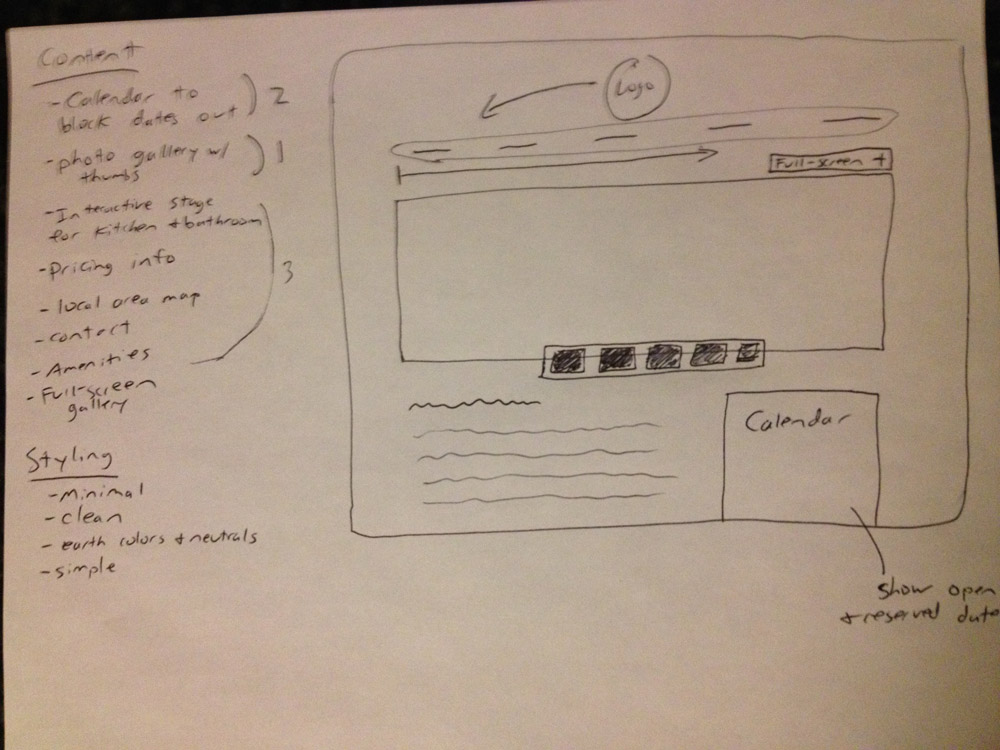 Content
- Calendar to
block dates out
2
- photo gallery w/
thumbs
1
- Interactive stage
for kitchen + bathroom
- Pricing info
- local area map
- contact
- Amenities
3
- Full-screen
gallery
Styling
- minimal
- clean
- earth colors + neutrals
- simple
Logo
Full-screen +
Calendar
show open
+ reserved date